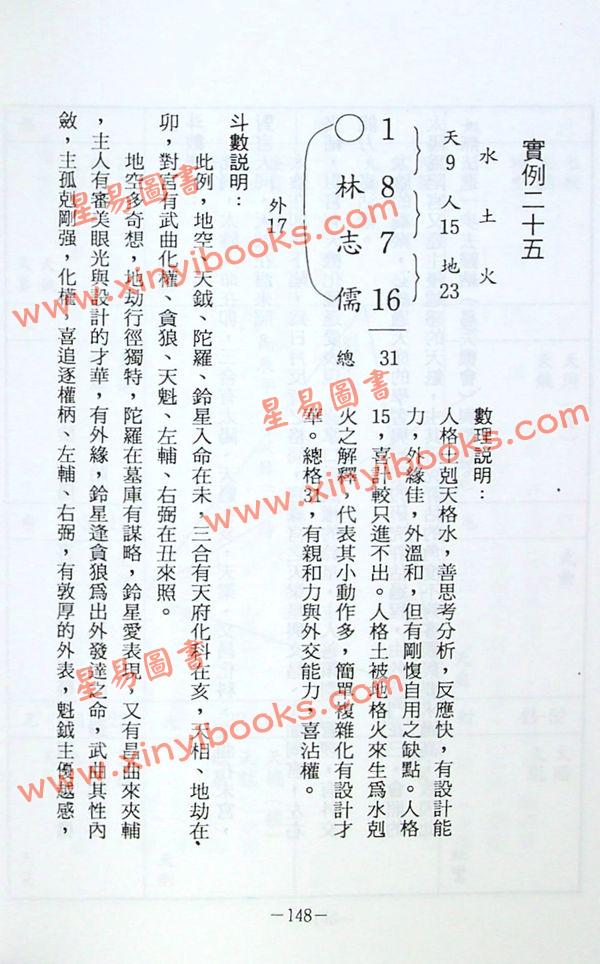 實例二十五
水 土 火
天9 人15 地23
1
林 8
志 7
儒 16
外17
總 31
數理説明：
人格土剋天格水，善思考分析，反應快，有設計能
力，外緣佳，外溫和，但有剛愎自用之缺點。人格
15，喜計較只進不出。人格土被地格火來生爲水剋
火之解釋，代表其小動作多，簡單複雜化有設計才
華。總格31，有親和力與外交能力，喜沾權。
斗數説明：
此例，地空、天鉞、陀羅、鈴星入命在未，三合有天府化科在亥，天相、地劫在
卯，對宮有武曲化權、貪狼、天魁、左輔、右弼在丑來照。
地空多奇想，地劫行徑獨特，陀羅在墓庫有謀略，鈴星愛表現，又有昌曲來夾輔
，主人有審美眼光與設計的才華，有外緣，鈴星逢貪狼爲出外發達之命，武曲其性內
斂，主孤剋剛强，化權，喜追逐權柄、左輔、右弼，有敦厚的外表，魁鉞主優越感，
－148－
星易圖書
www.xinyibooks.com
星易圖書
www.xinyibooks.com
星易圖書
www.xinyibooks.com